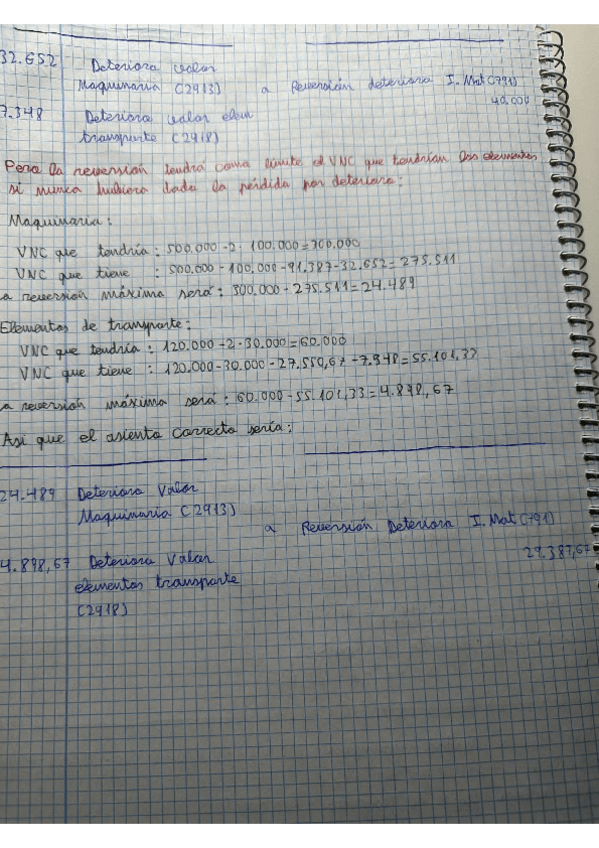 32.652 Deterioro valor
Maquinaria (2913) a Reversión deterioro I. Mat (791)
40.000
7.348 Deterioro valor elem
transporte (2918)
Pero la reversión tendrá como límite el VNC que tendrían los elementos
si nunca hubiera dado la pérdida por deterioro:
Maquinaria:
VNC que tendría: 500.000 - 2 · 100.000 = 300.000
VNC que tiene : 500.000 - 100.000 - 91.387 - 32.652 = 275.511
a reversión máxima será: 300.000 - 275.511 = 24.489
Elementos de transporte:
VNC que tendría : 120.000 - 2 · 30.000 = 60.000
VNC que tiene : 120.000 - 30.000 - 27.550,67 - 7.348 = 55.101,33
a reversión máxima será : 60.000 - 55.101,33 = 4.898,67
Así que el asiento correcto sería:
24.489 Deterioro Valor
Maquinaria (2913)
a Reversión Deterioro I. Mat (791)
4.898,67 Deterioro Valor 29.387,67
elementos transporte
(2918)